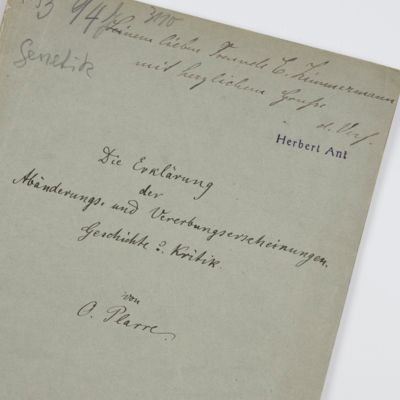 53 94/3110
Genetik
Seinem lieben Freunde E. Zimmermann
mit herzlichem Gruße
d. Verf.
Herbert Ant
Die Erklärung
der
Abänderungs- und Vererbungserscheinungen.
Geschichte & Kritik.
von
O. Plarre.